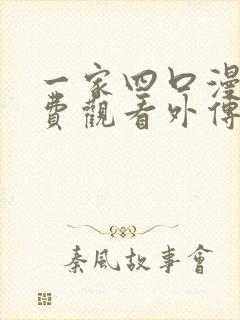 一家四口漫
費觀看外傳
秦風故事會